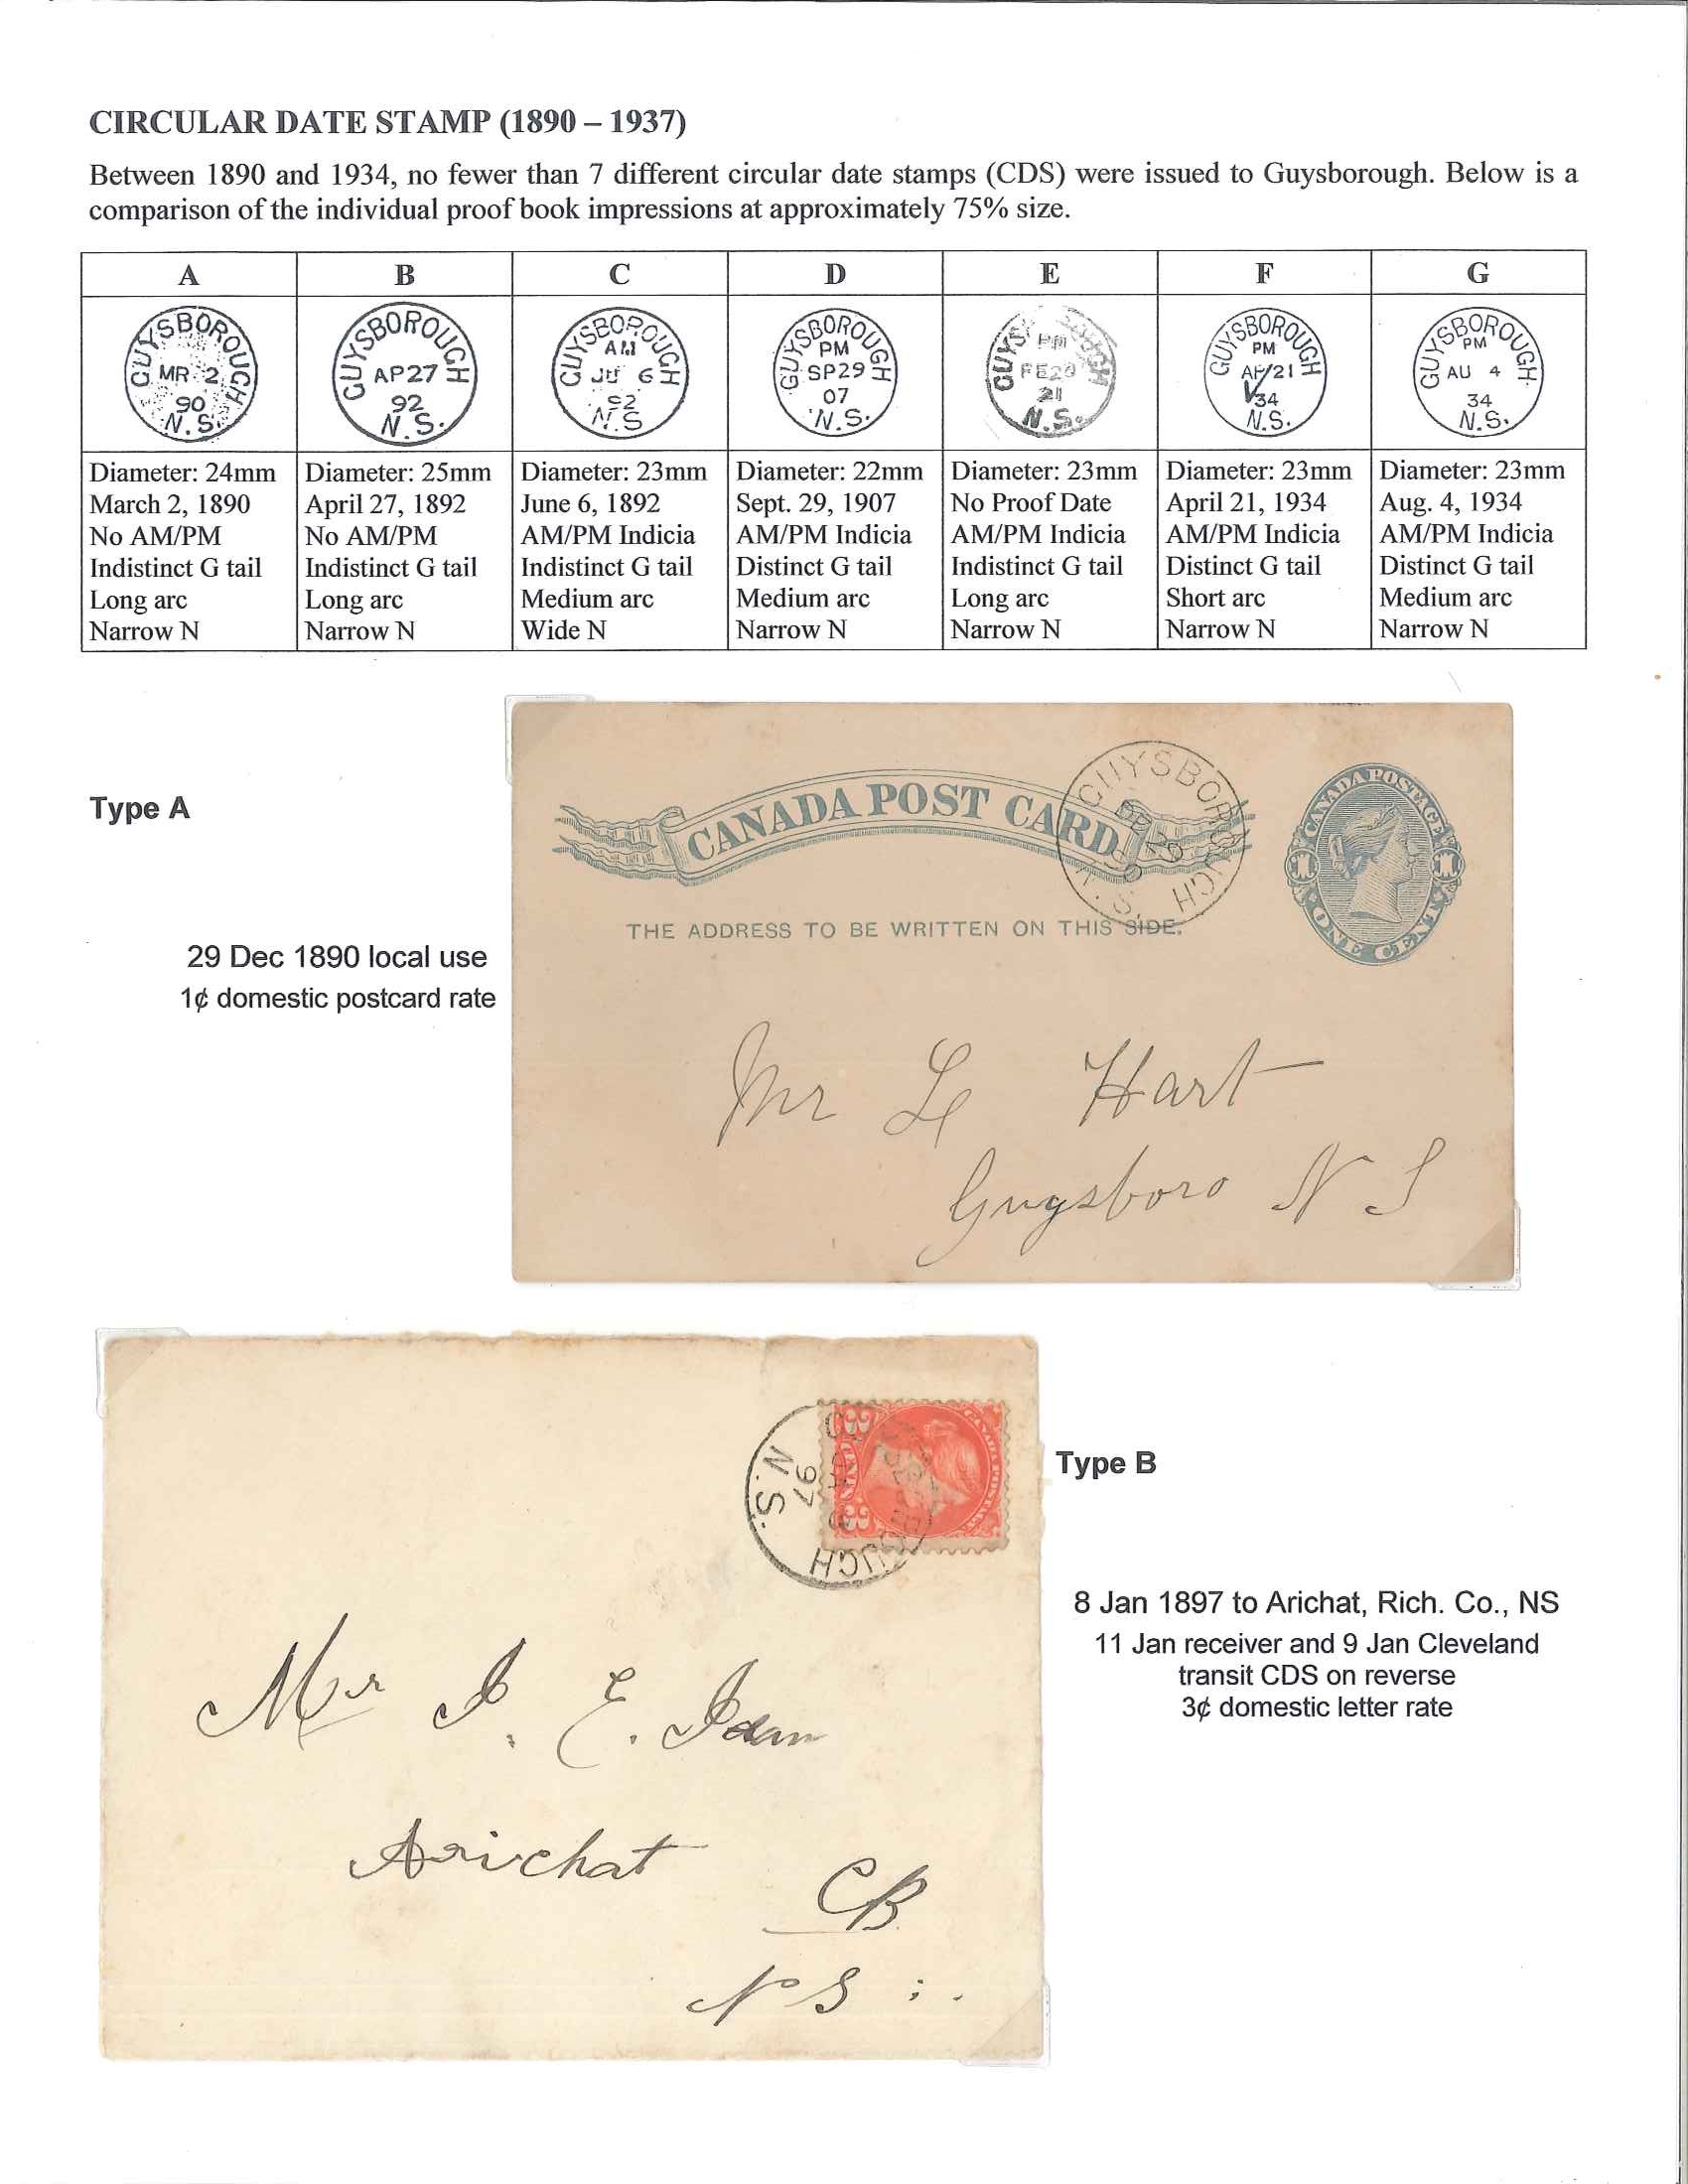 CIRCULAR DATE STAMP (1890 – 1937)
Between 1890 and 1934, no fewer than 7 different circular date stamps (CDS) were issued to Guysborough. Below is a
comparison of the individual proof book impressions at approximately 75% size.
A B C D E F G
GUYSBOROUGH MR 2 90 N.S.
GUYSBOROUGH AP27 92 N.S.
GUYSBOROUGH AM 6 92 N.S
GUYSBOROUGH PM SP29 07 N.S.
PM FE20 21 N.S.
GUYSBOROUGH PM 21 34 N.S.
GUYSBOROUGH PM AU 4 34 N.S.
Diameter: 24mm Diameter: 25mm Diameter: 23mm Diameter: 22mm Diameter: 23mm Diameter: 23mm Diameter: 23mm
March 2, 1890 April 27, 1892 June 6, 1892 Sept. 29, 1907 No Proof Date April 21, 1934 Aug. 4, 1934
No AM/PM No AM/PM AM/PM Indicia AM/PM Indicia AM/PM Indicia AM/PM Indicia AM/PM Indicia
Indistinct G tail Indistinct G tail Indistinct G tail Distinct G tail Indistinct G tail Distinct G tail Distinct G tail
Long arc Long arc Medium arc Medium arc Long arc Short arc Medium arc
Narrow N Narrow N Wide N Narrow N Narrow N Narrow N Narrow N
Type A
29 Dec 1890 local use
1¢ domestic postcard rate
CANADA POST CARD
GUYSBOROUGH 90 N.S.
CANADA POSTAGE
1 1
ONE CENT
THE ADDRESS TO BE WRITTEN ON THIS SIDE.
Mr L Hart
Guysboro N S
N.S. 97
3 3
Type B
8 Jan 1897 to Arichat, Rich. Co., NS
11 Jan receiver and 9 Jan Cleveland
transit CDS on reverse
3¢ domestic letter rate
Mr
E.
Arichat
CB
N S